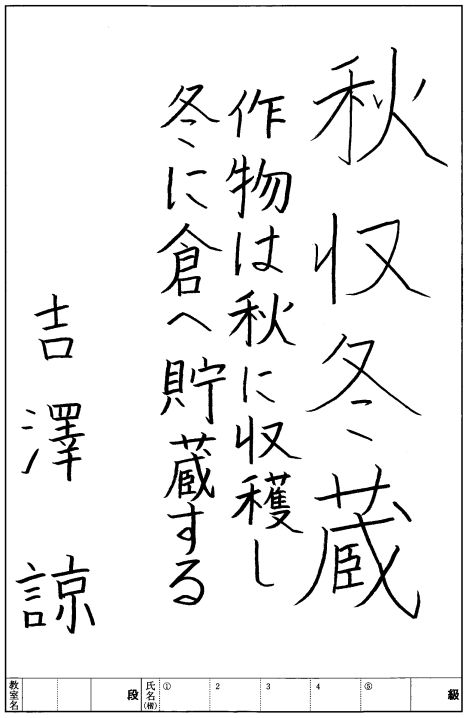 秋収冬蔵
作物は秋に収穫し
冬に倉へ貯蔵する
吉澤 諒
教室名 段 氏名(楷) ① 2 3 4 ⑤ 級